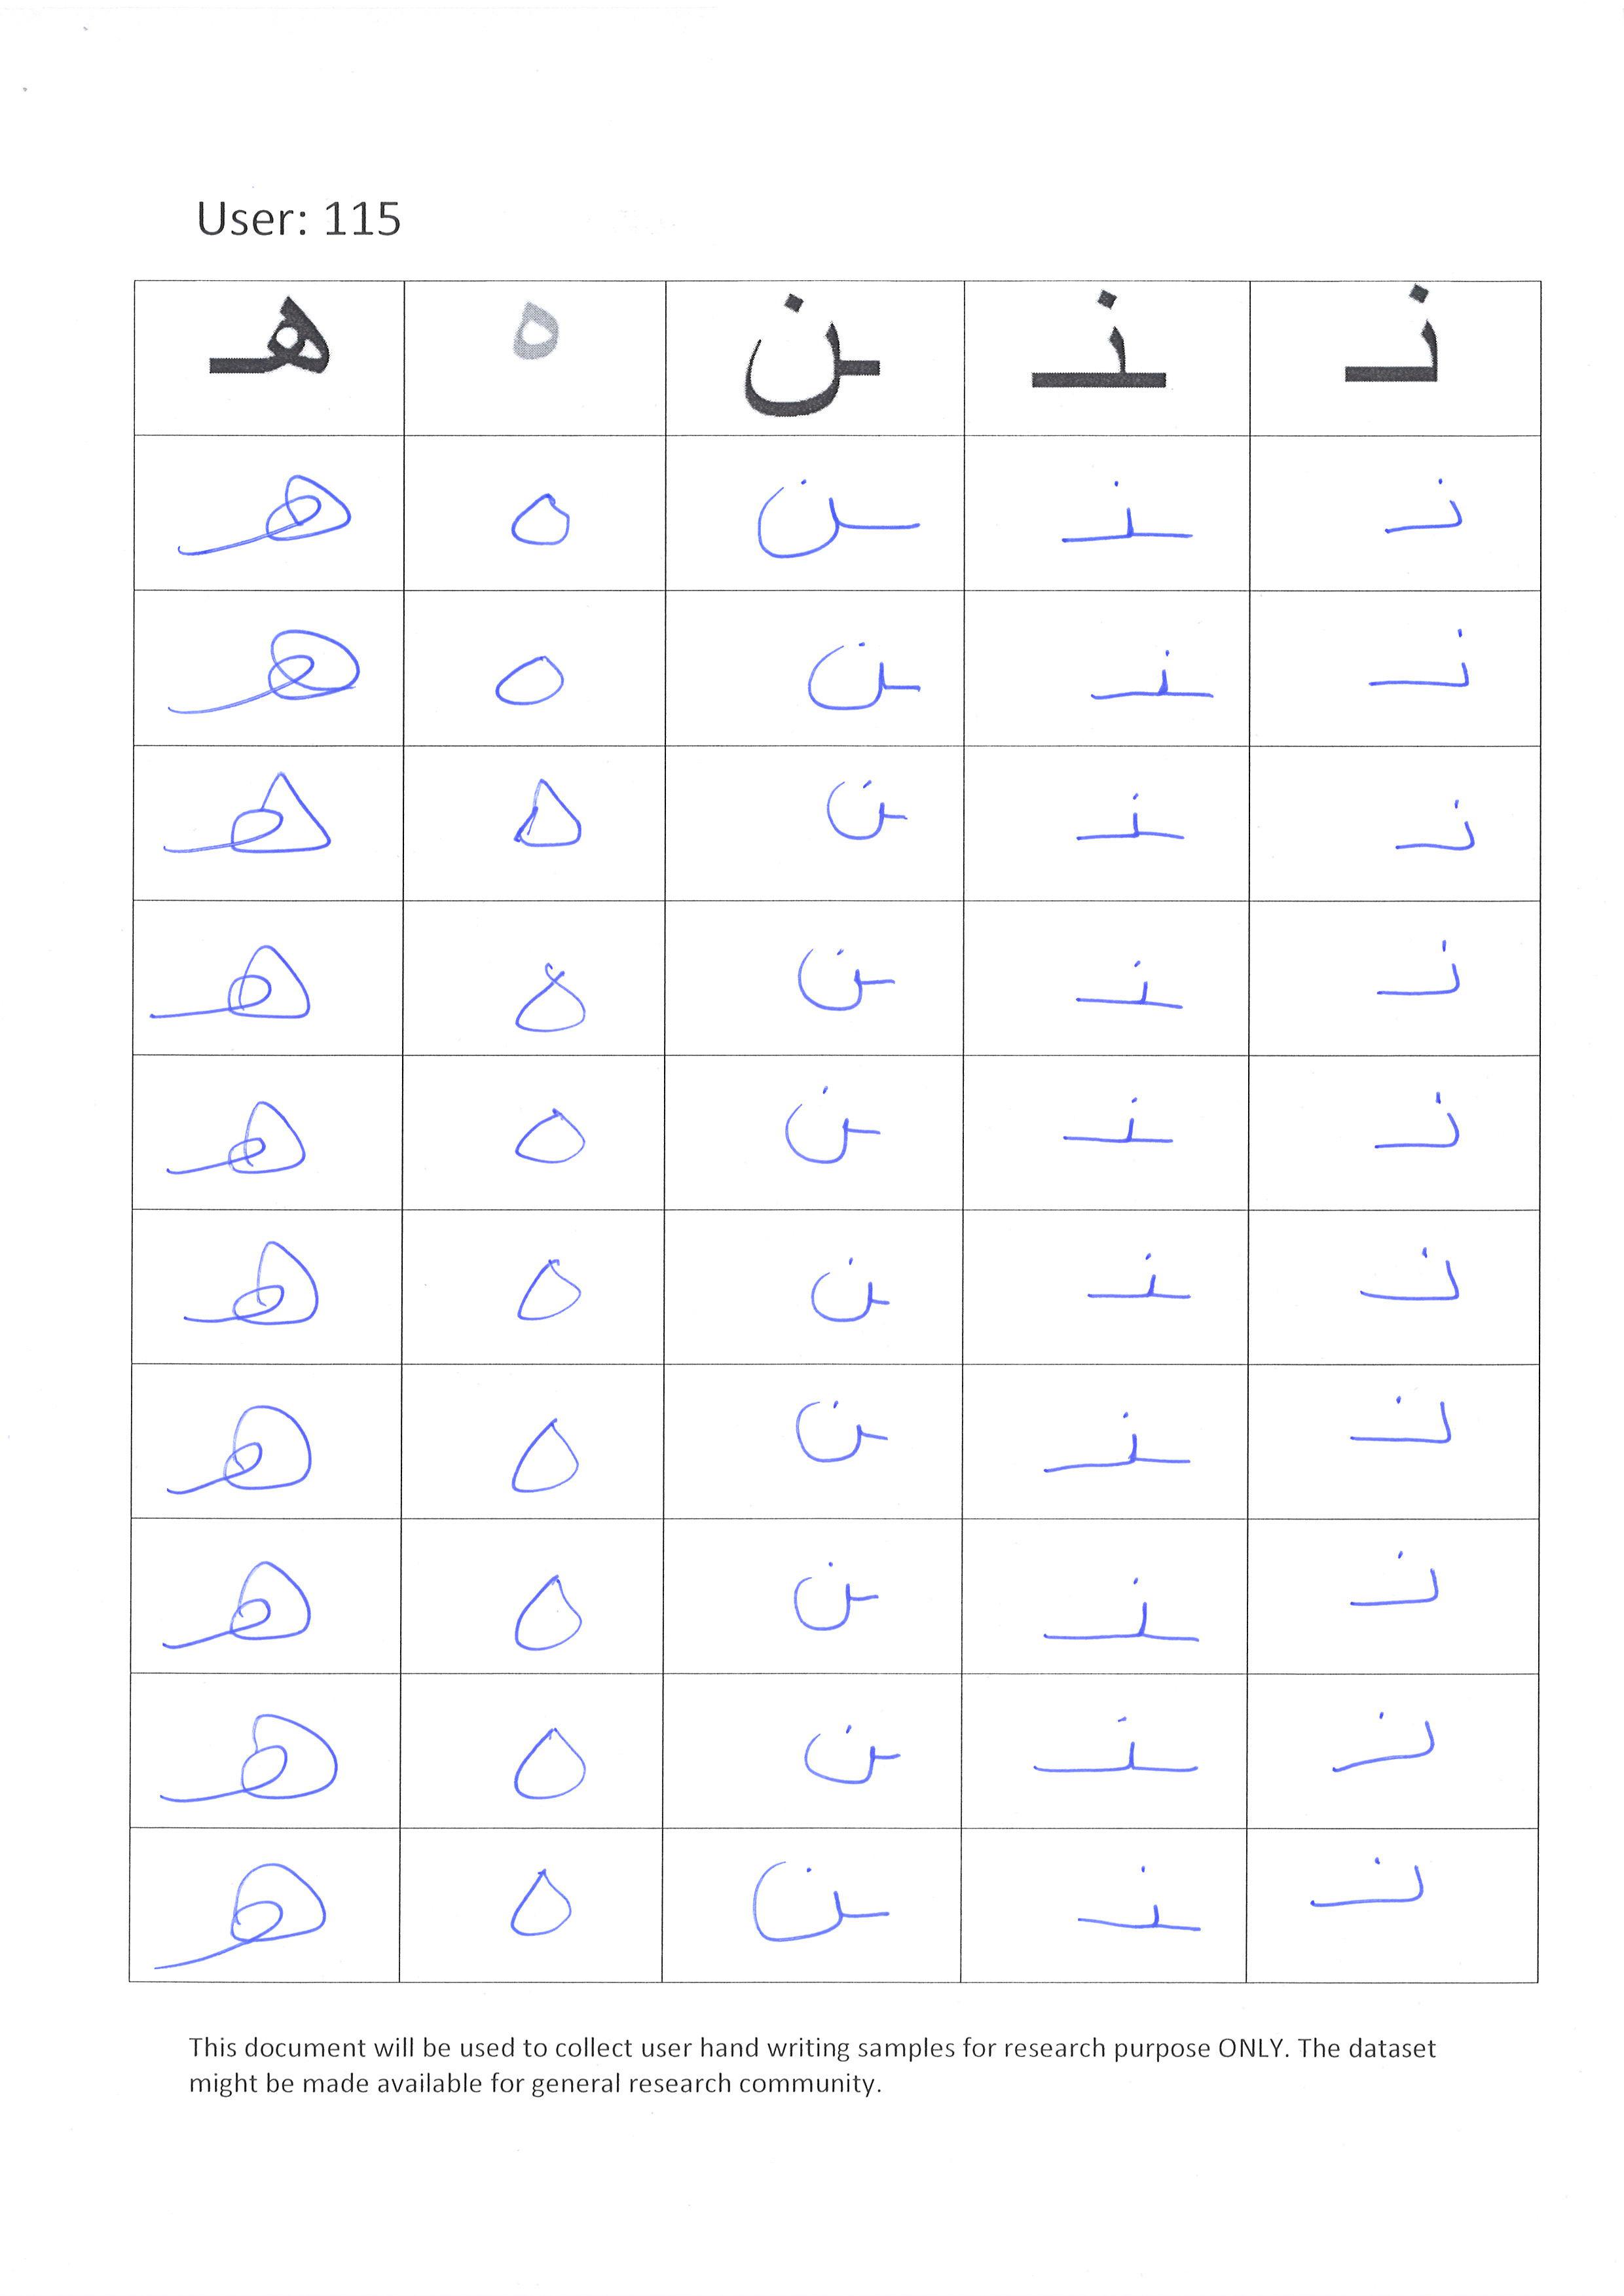 User: 115
هـ ه ـن ـنـ نـ
هـ ه ـن ـنـ نـ
هـ ه ـن ـنـ نـ
هـ ه ـن ـنـ نـ
هـ ه ـن ـنـ نـ
هـ ه ـن ـنـ نـ
هـ ه ـن ـنـ نـ
هـ ه ـن ـنـ نـ
هـ ه ـن ـنـ نـ
هـ ه ـن ـنـ نـ
هـ ه ـن ـنـ نـ
This document will be used to collect user hand writing samples for research purpose ONLY. The dataset
might be made available for general research community.